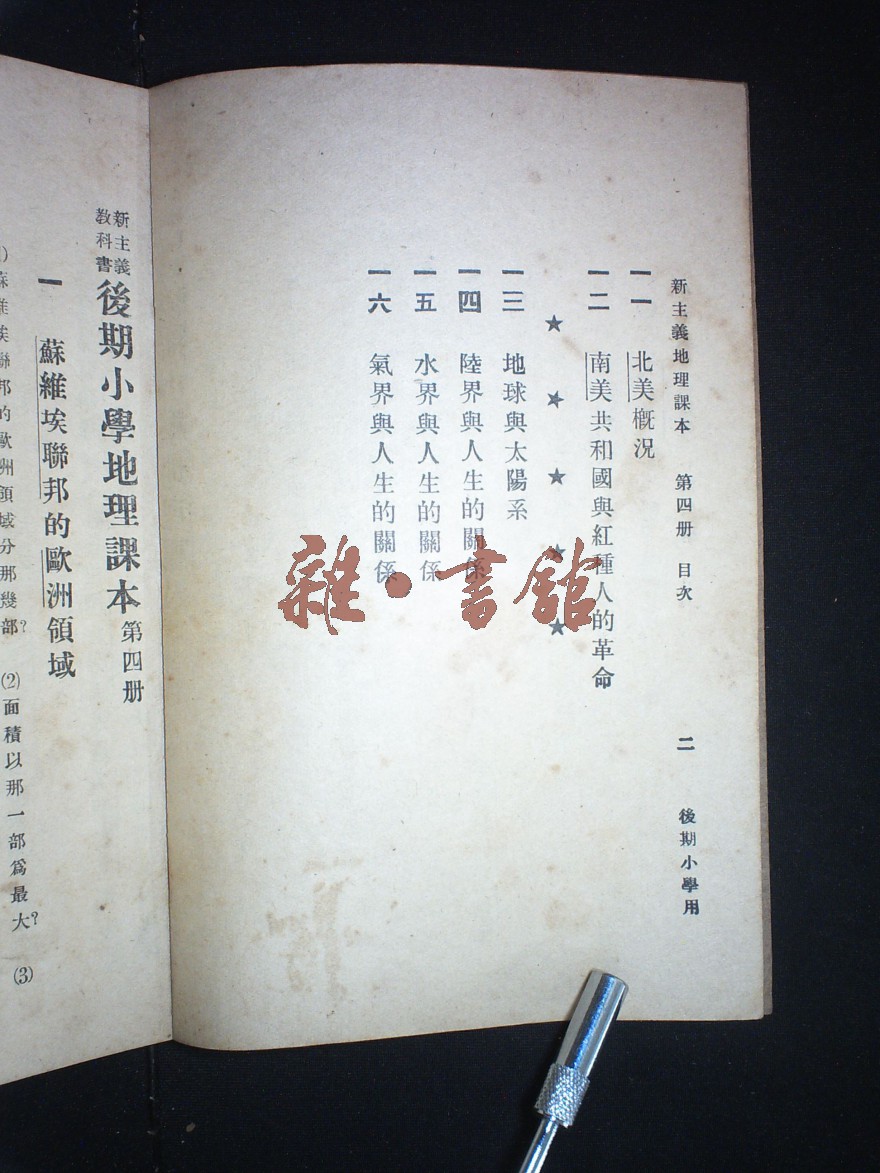 新主義地理課本 第四册 目次 二 後期小學用
一一 北美概況
一二 南美共和國與紅種人的革命
★ ★ ★ ★ ★
一三 地球與太陽系
一四 陸界與人生的關係
一五 水界與人生的關係
一六 氣界與人生的關係
雜·書館
新主義
教科書
後期小學地理課本 第四册
一 蘇維埃聯邦的歐洲領域
蘇維埃聯邦的歐洲領域分那幾部? (2)面積以那一部爲最大? (3)